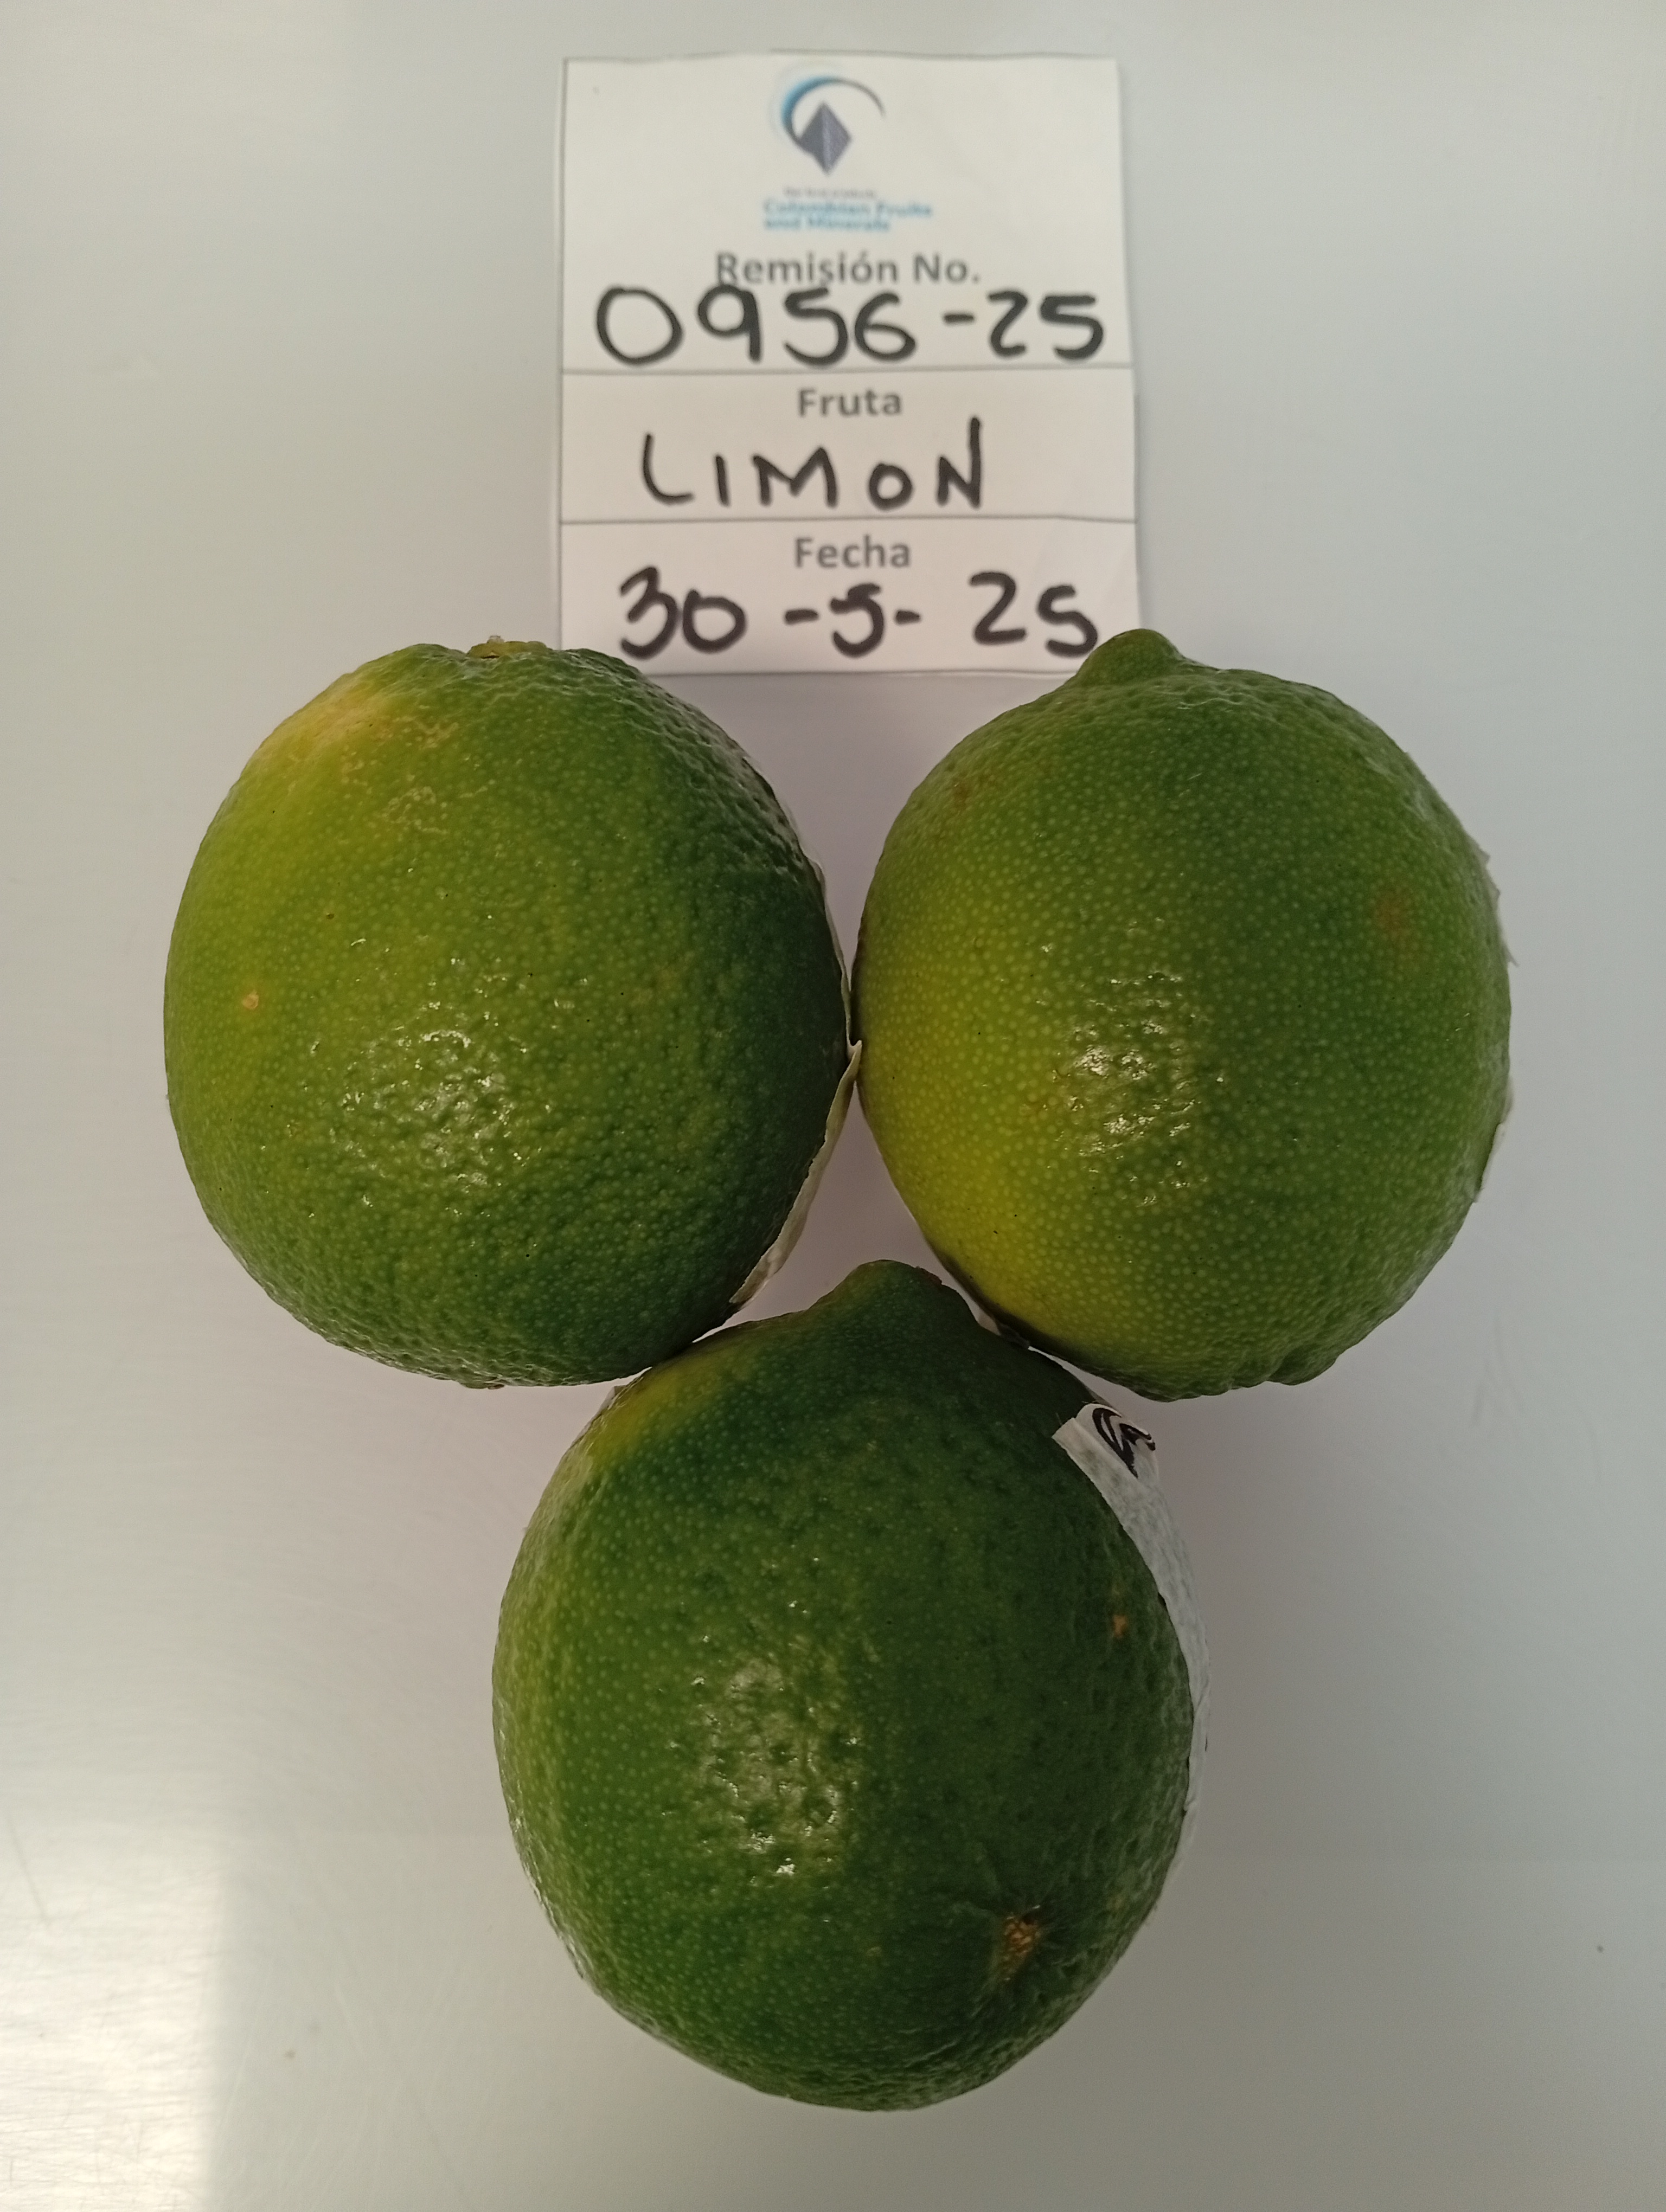 Colombian Fruits
and Minerals
Remisión No.
0956-25
Fruta
LIMON
Fecha
30-5-25